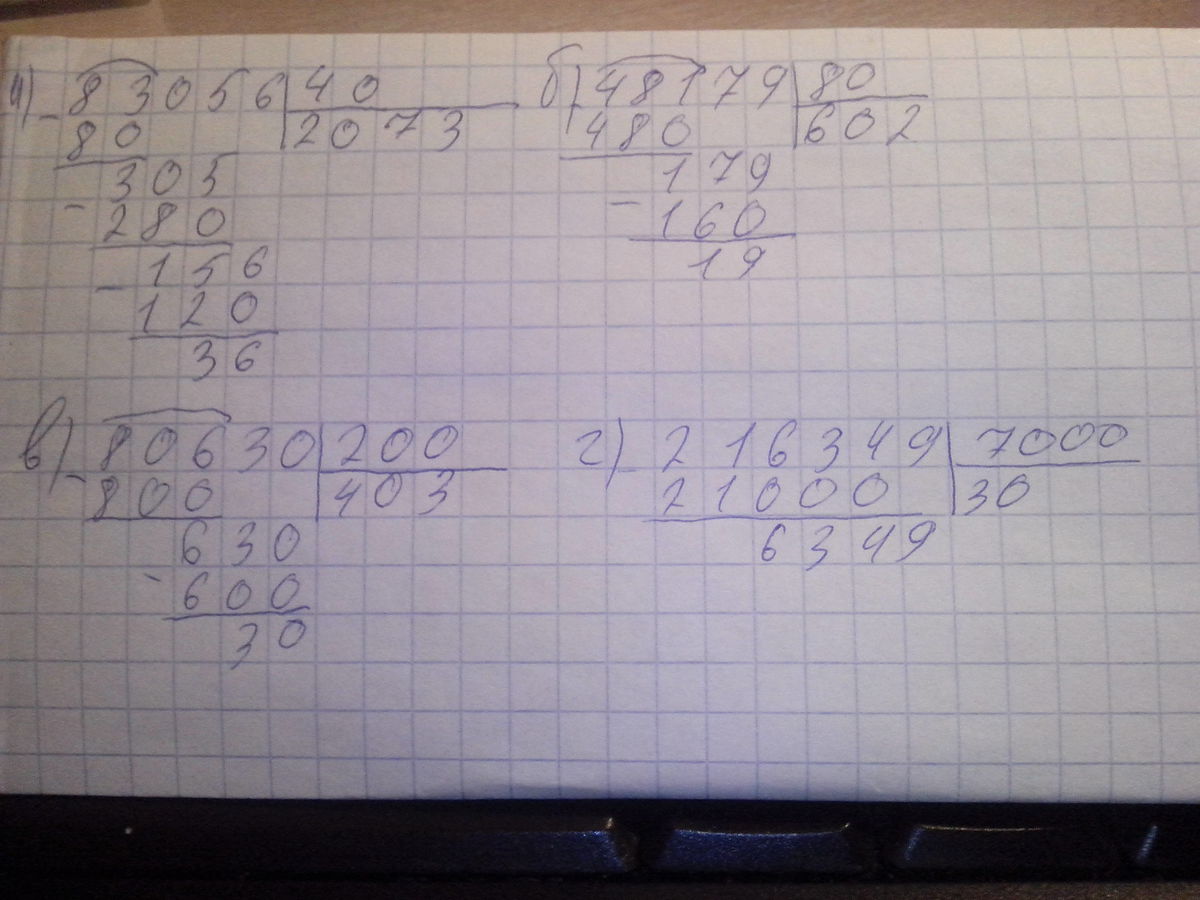 а) 83056 40 б) 48179 80
80 2073 480 602
305 179
280 160
156 19
120
36
в) 80630 200 г) 216349 7000
800 403 21000 30
630 6349
600
30